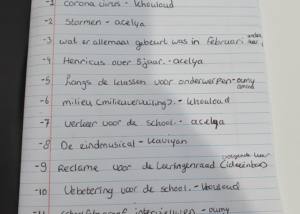 -1 corona virus - khouloud
-2 Stormen - acelya
-3 wat er allemaal gebeurt was in februari
-4 Henricus over 5 jaar. - acelya
-5 langs de klassen voor onderwerpen - oumy
-6 milieu (milieuvervuiling). - khouloud
-7 verkeer voor de school. - acelya
-8 De eindmusical - kaviyan
-9 Reclame voor de leerlingenraad (ideeënbus)
-10 Verbetering voor de school. - khouloud